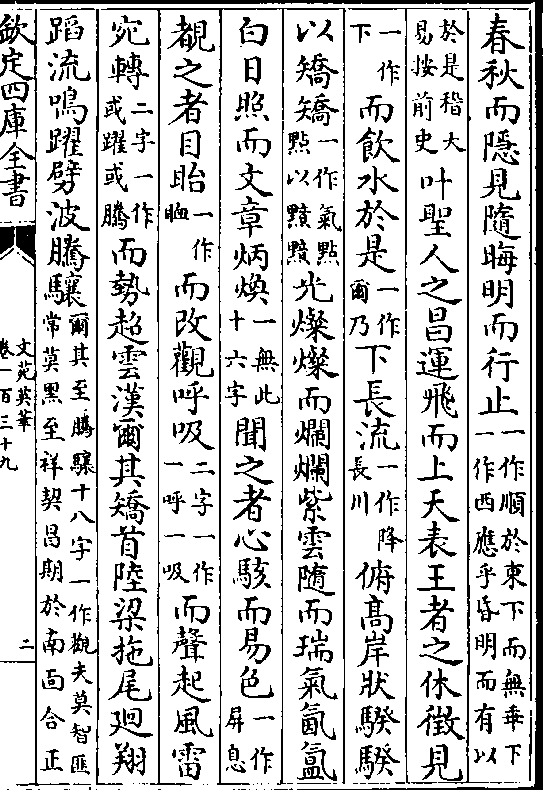 春秋而隱見隨晦明而行止一作順於東下而無垂下一作西應乎昏明而有以
於是稽大易按前史叶聖人之昌運飛而上天表王者之休徵見
一作下而飲水於是一作爾乃下長流一作降長川俯髙岸狀騤騤
以矯矯一作氣點點以黰黰光燦燦而爛爛紫雲隨而瑞氣氤氳
白日照而文章炳煥一無此十六字聞之者心駭而易色一作屏息
覩之者目眙一作而改觀呼吸二字一作一呼一吸而聲起風雷
宛轉二字一作或躍或騰而勢超雲漢爾其矯首陸梁拖尾廻翔
蹈流鳴躍劈波騰驤爾其至騰驤十八字一作觀夫莫智匪常莫黑至祥契昌期於南靣合正
欽定四庫全書
文苑英華
卷一百三十九
二